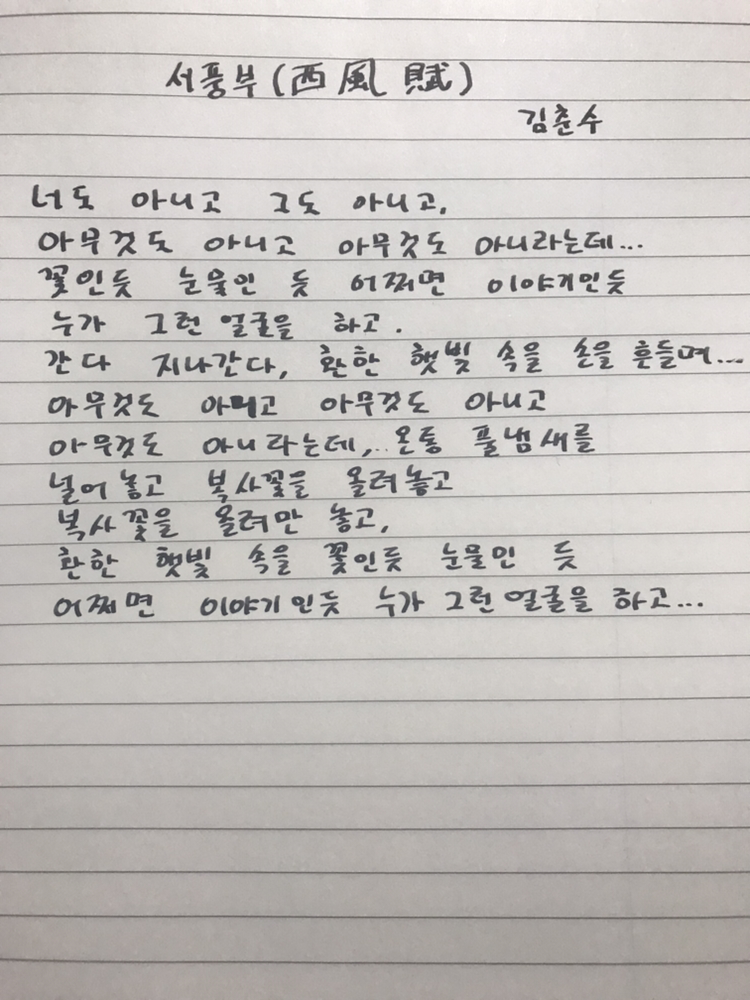 서풍부(西風賦)
김춘수
너도 아니고 그도 아니고,
아무것도 아니고 아무것도 아니라는데...
꽃인듯 눈물인 듯 어쩌면 이야기인듯
누가 그런 얼굴을 하고.
간다 지나간다, 환한 햇빛 속을 손을 흔들며...
아무것도 아니고 아무것도 아니고
아무것도 아니라는데,.. 온통 풀냄새를
널어놓고 복사꽃을 올려놓고
복사꽃을 올려만 놓고,
환한 햇빛 속을 꽃인듯 눈물인 듯
어쩌면 이야기인듯 누가 그런 얼굴을 하고...